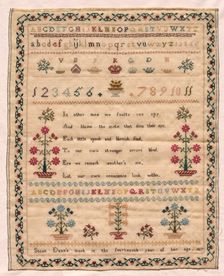 ABCDEFGHIKLMNOPQRSTUVWXYZ
abcdefghijklmnopqrstuvwxyz
1 2 3 4 5 6 7 8 9 10 11
In other men we faults can spy
And blame the mote that dims their eye
Each little speck and blemish find
To our own stronger errors blind
Ere we remark another's sin
Let our own conscience look within
ABCDEFGHIKLMNOPQRSTUVWXYZ
work in the fourteenth year of her age